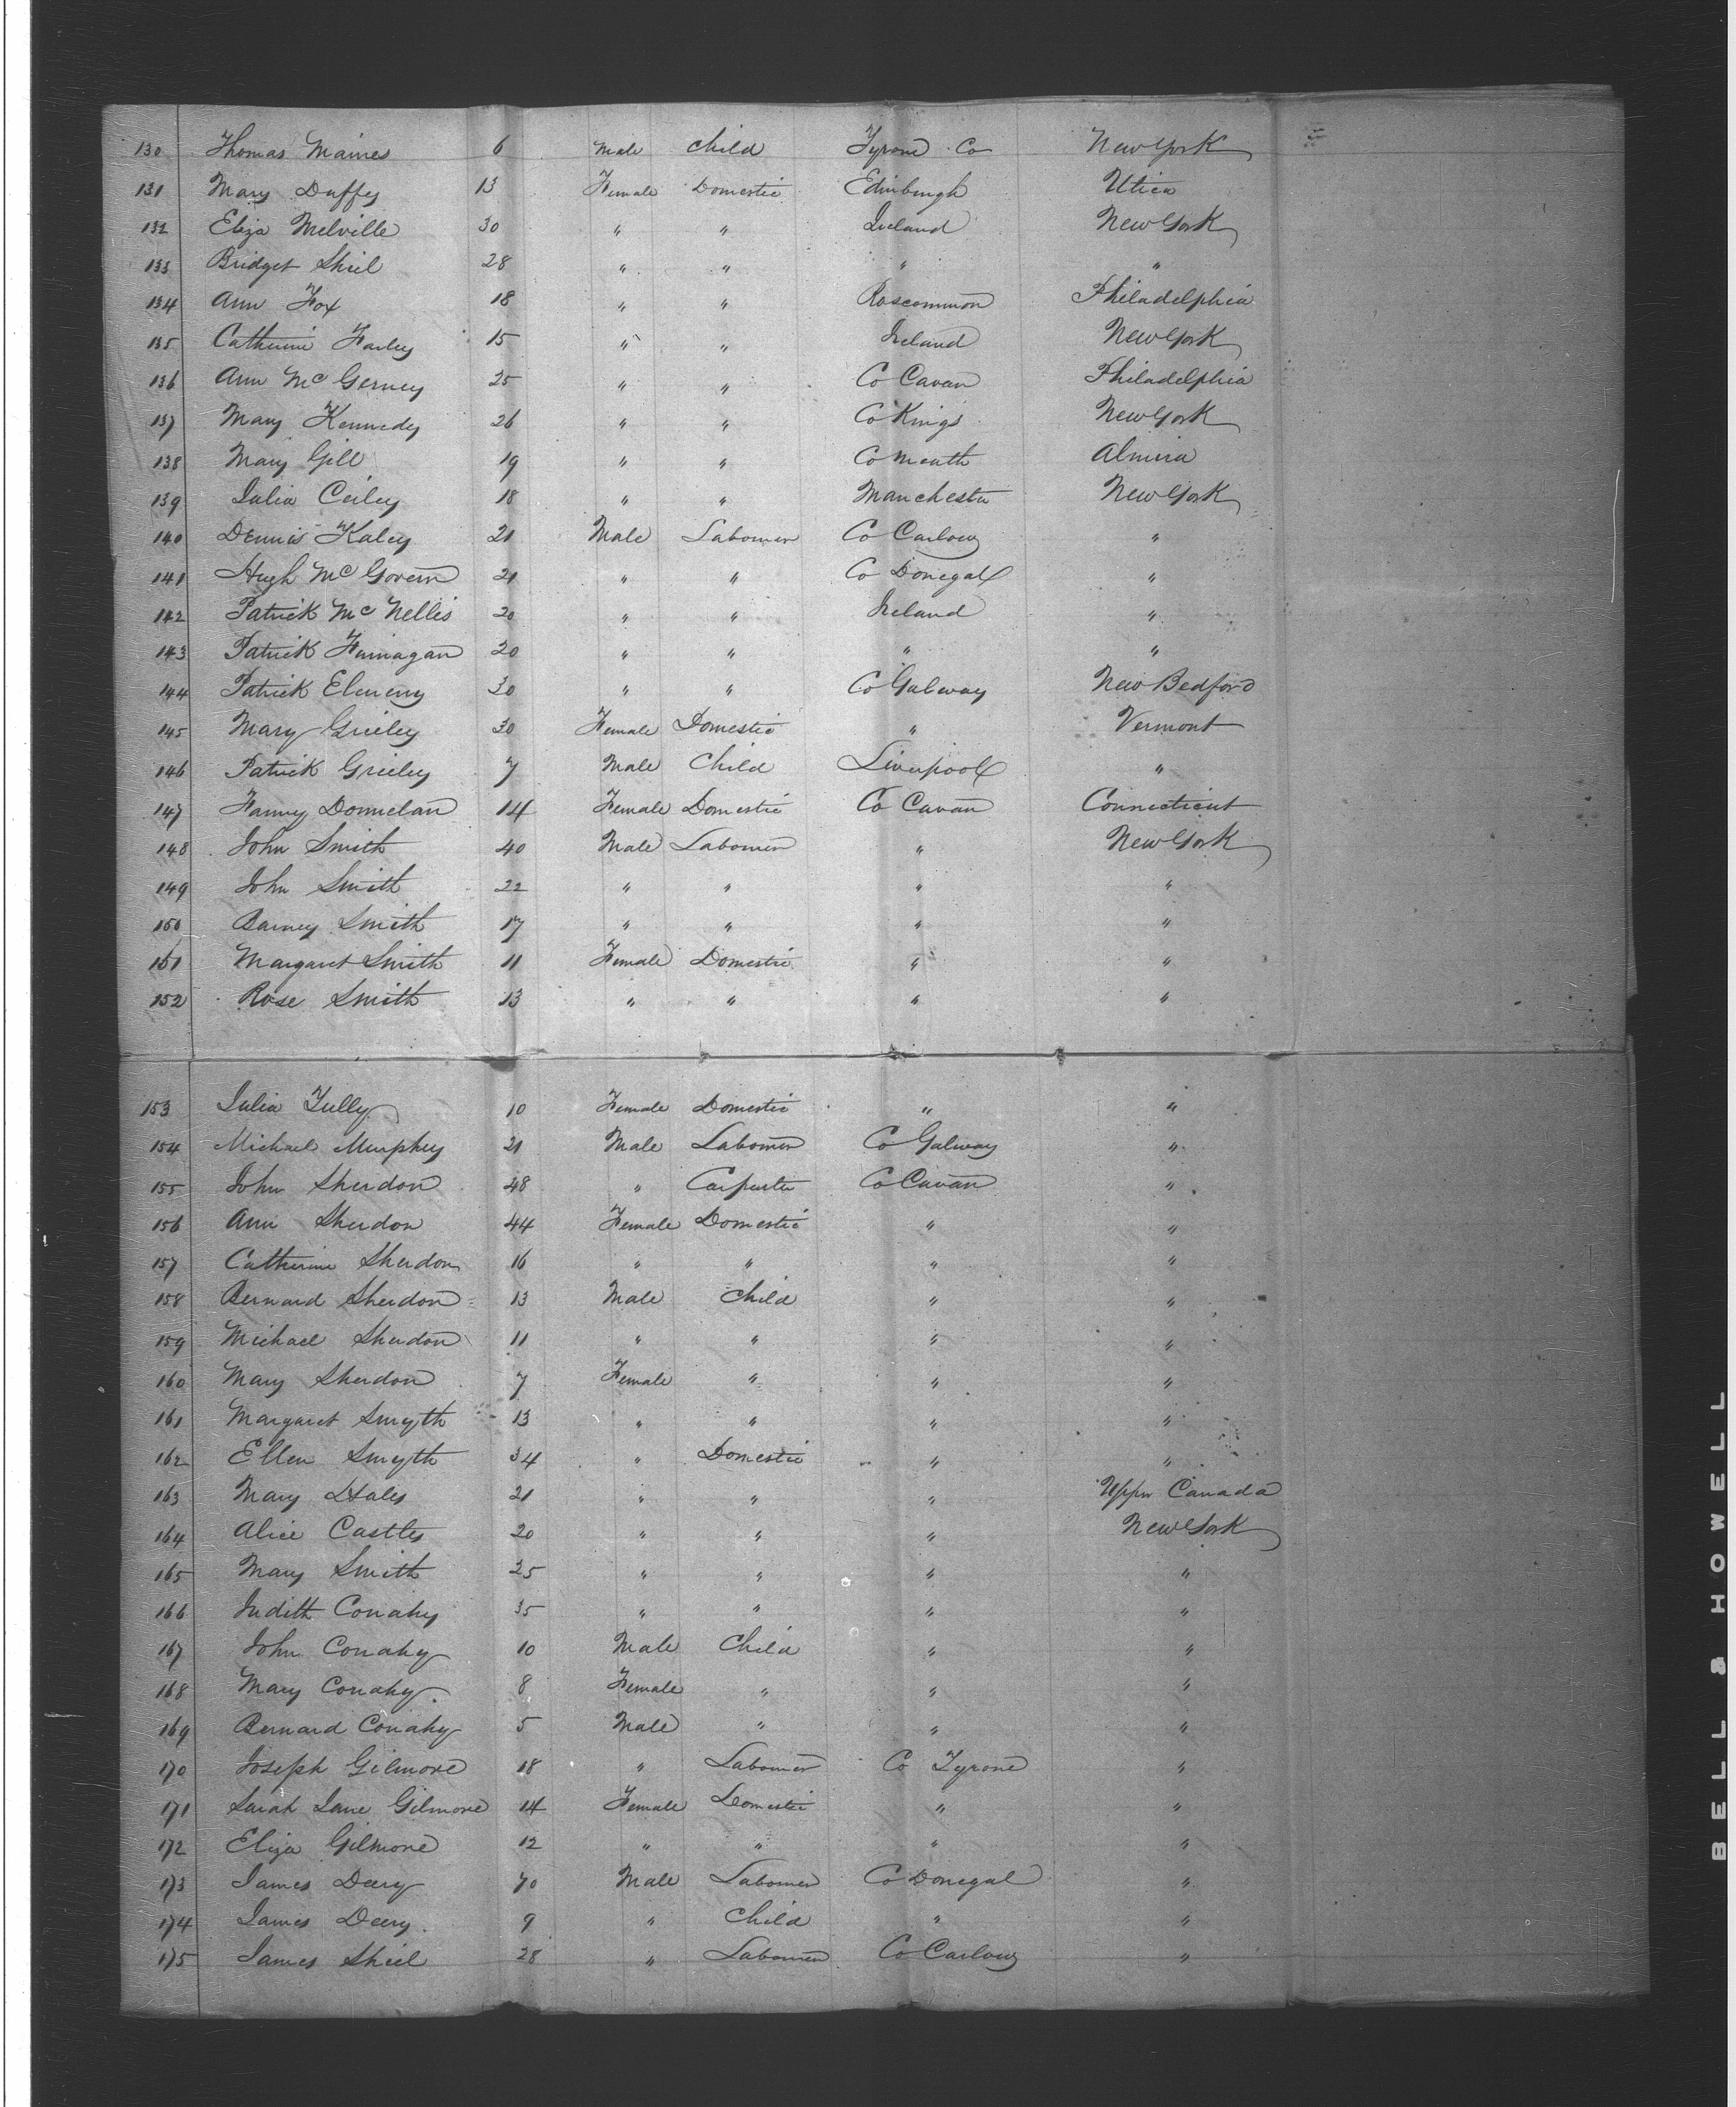 130 Thomas Maines 6 Male Child Tyrone Co New York
131 Mary Duffy 13 Female Domestic Edinburgh Utica
132 Eliza Melville 30 " " Ireland New York
133 Bridget Shiel 28 " " " "
134 Ann Fox 18 " " Roscommon Philadelphia
135 Catherine Farley 15 " " Ireland New York
136 Ann Mc Gerney 25 " " Co Cavan Philadelphia
137 Mary Kennedy 26 " " Co Kings New York
138 Mary Gill 19 " " Co Meath Almira
139 Julia Ceiley 18 " " Manchester New York
140 Dennis Kaley 21 Male Labourer Co Carlow "
141 Hugh Mc Govern 21 " " Co Donegal "
142 Patrick Mc Nellis 20 " " Ireland "
143 Patrick Finnagan 20 " " " "
144 Patrick 30 " " Co Galway New Bedford
145 Mary Grieley 30 Female Domestic " Vermont
146 Patrick Grieley 7 Male Child Liverpool "
147 Fanny Donnelan 14 Female Domestic Co Cavan Connecticut
148 John Smith 40 Male Labourer " New York
149 John Smith 22 " " " "
150 Barney Smith 17 " " " "
151 Margaret Smith 11 Female Domestic " "
152 Rose Smith 13 " " " "
153 Julia Tully 10 Female Domestic " "
154 Michael Murphy 21 Male Labourer Co Galway "
155 John Sherdon 48 " Carpenter Co Cavan "
156 Ann Sherdon 44 Female Domestic " "
157 Catherine Sherdon 16 " " " "
158 Bernard Sherdon 13 Male Child " "
159 Michael Sherdon 11 " " " "
160 Mary Sherdon 7 Female " " "
161 Margaret Smyth 13 " " " "
162 Ellen Smyth 34 " Domestic " "
163 Mary Hales 21 " " " Upper Canada
164 Alice Castles 20 " " " New York
165 Mary Smith 25 " " " "
166 Judith Conahy 35 " " " "
167 John Conahy 10 Male Child " "
168 Mary Conahy 8 Female " " "
169 Bernard Conahy 5 Male " " "
170 Joseph Gilmore 18 " Labourer Co Tyrone "
171 Sarah Jane Gilmore 14 Female Domestic " "
172 Eliza Gilmore 12 " " " "
173 James Deery 70 Male Labourer Co Donegal "
174 James Deery 9 " Child " "
175 James Shiel 28 " Labourer Co Carlow "
BELL & HOWELL